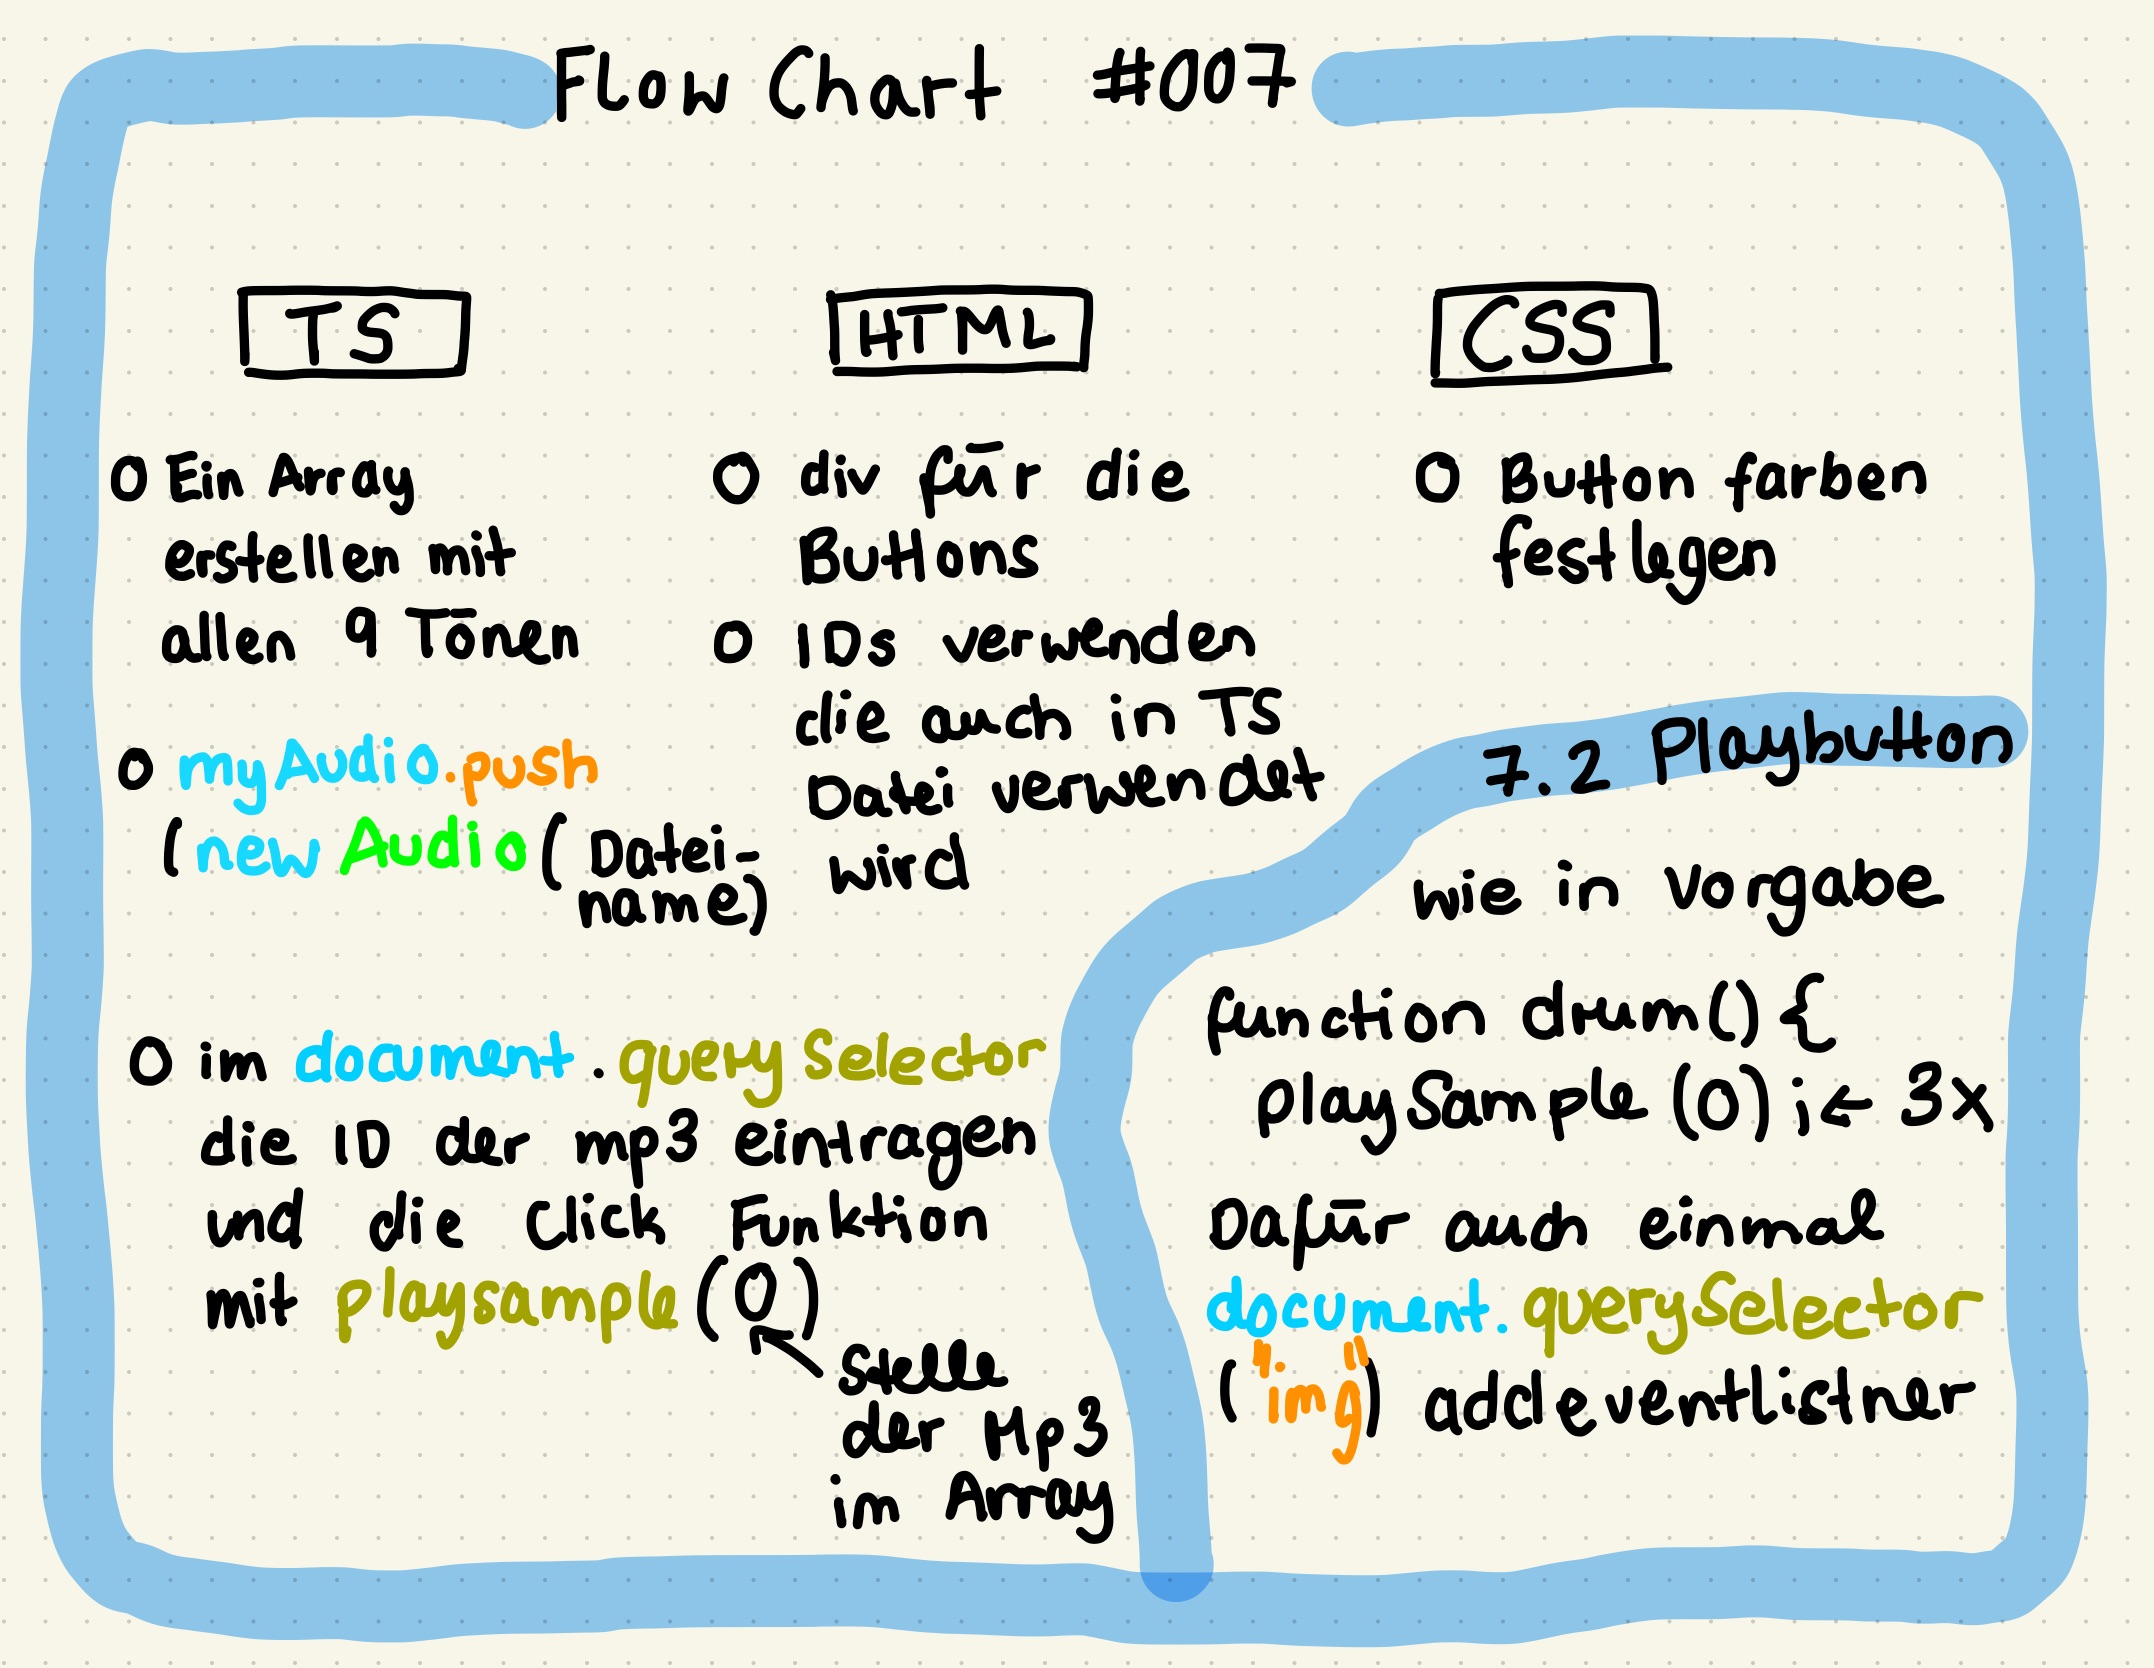 Flow Chart #007
TS
HTML
CSS
O Ein Array
erstellen mit
allen 9 Tönen
O myAudio.push
(new Audio (Datei-
name)
O im document.querySelector
die ID der mp3 eintragen
und die Click Funktion
mit playsample (0)
Stelle
der Mp3
im Array
O div für die
Buttons
O IDs verwenden
die auch in TS
Datei verwendet
wird
O Button farben
festlegen
7.2 Playbutton
wie in Vorgabe
function drum() {
playSample (0); ← 3x
Dafür auch einmal
document.querySelector
("img") addeventlistner